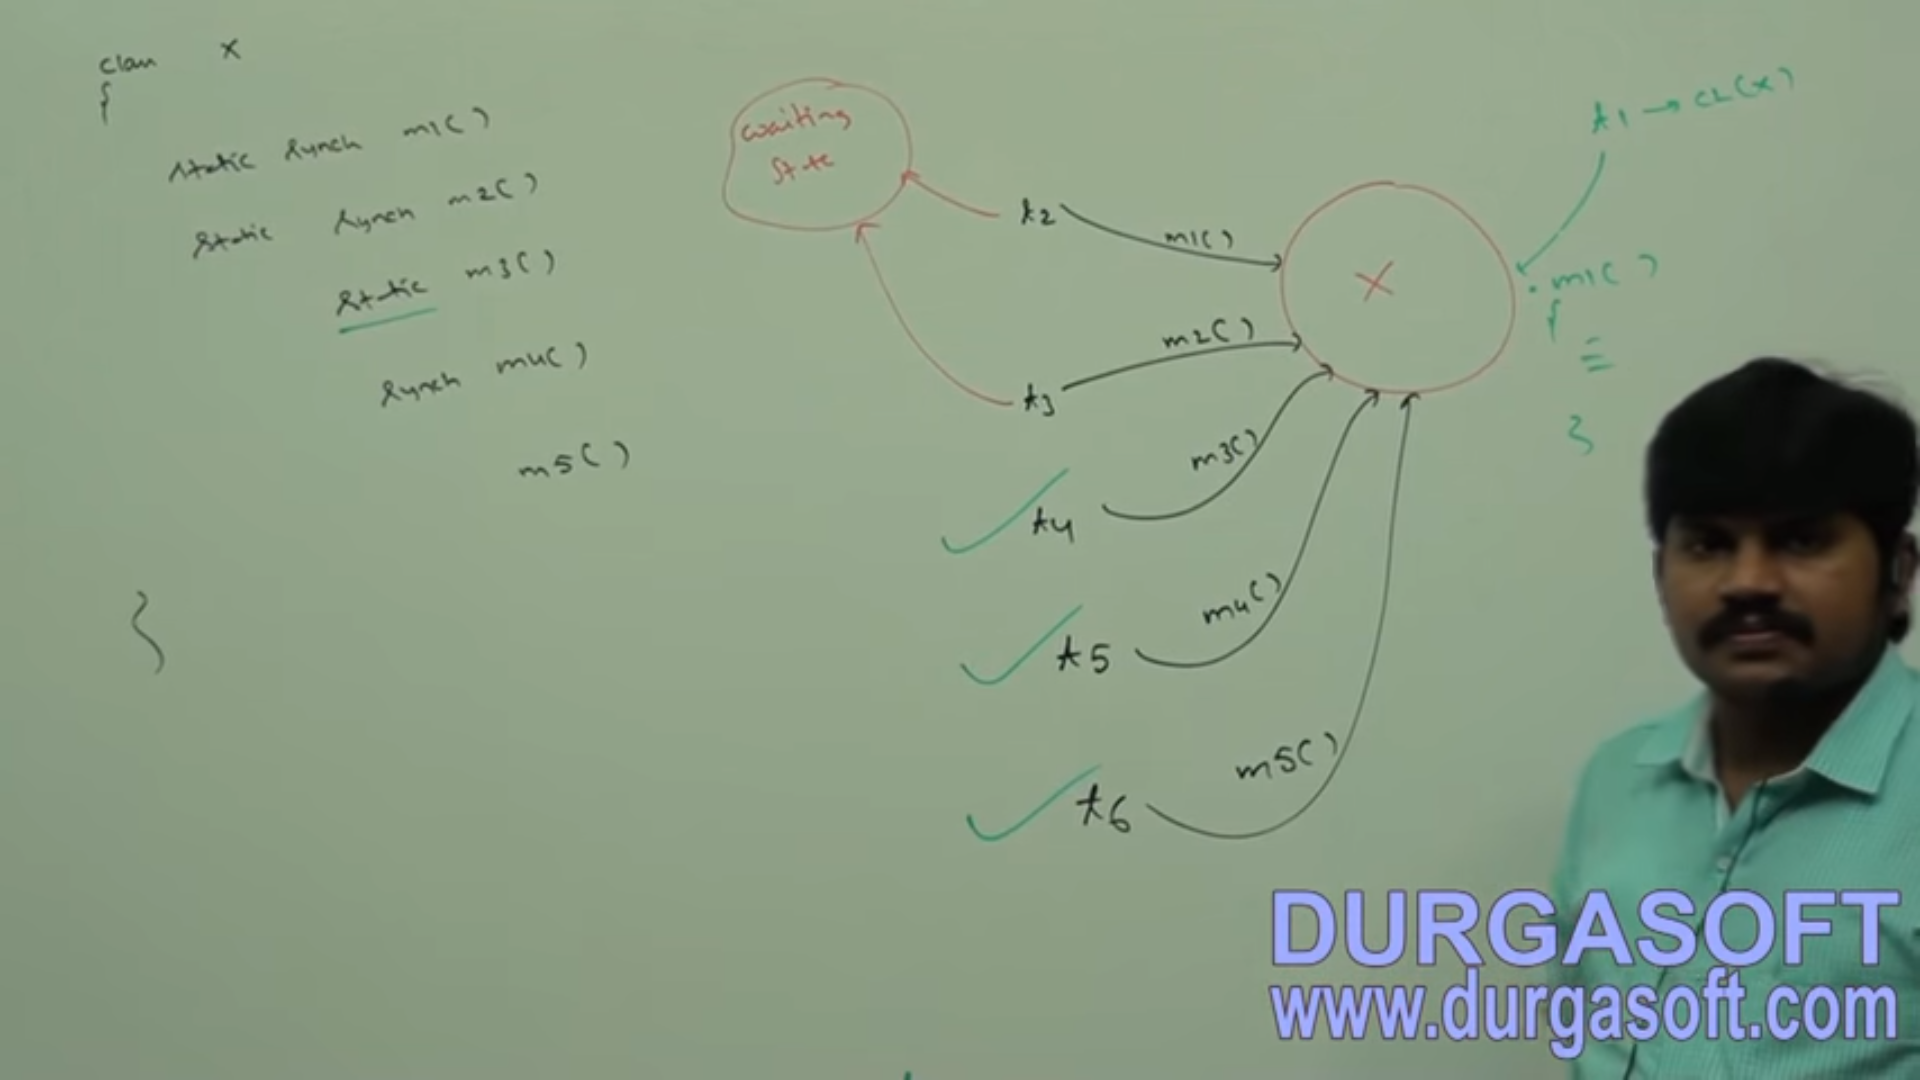 class X
{
static synch m1( )
static synch m2( )
static m3( )
synch m4( )
m5( )
}
waiting
state
t2
m1( )
t3
m2( )
t4
m3( )
t5
m4( )
t6
m5( )
X
t1 → CL(X)
m1( )
{
≡
}
DURGASOFT
www.durgasoft.com